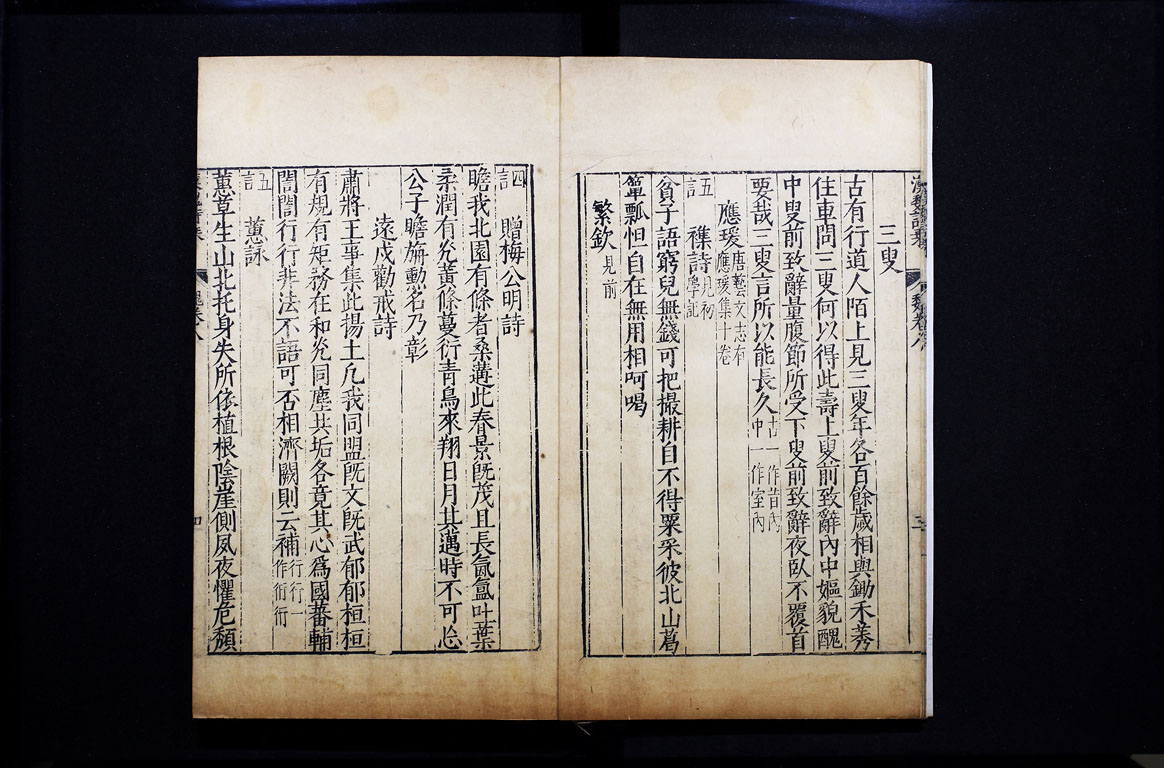 三叟
古有行道人陌上見三叟年各百餘歲相與鋤禾莠
住車問三叟何以得此壽上叟前致辭內中嫗貌醜
中叟前致辭量腹節所受下叟前致辭夜臥不覆首
要哉三叟言所以能長久古一作昔內中一作室內
應瑗唐藝文志有應瑗集十卷
五言 襍詩見初學記
貧子語窮兒無錢可把撮耕自不得粟采彼北山葛
簞瓢怛自在無用相呵喝
繁欽見前
四言 贈梅公明詩
瞻我北園有條者桑遘此春景旣茂且長氤氳吐葉
柔潤有光黃條蔓衍青鳥來翔日月其邁時不可忘
公子瞻旃勳名乃彰
遠戍勸戒詩
肅將王事集此揚土凢我同盟旣文旣武郁郁桓桓
有規有矩務在和光同塵共垢各竟其心爲國蕃輔
誾誾行行非法不語可否相濟闕則云補行行一作衎衎
五言 蕙詠
蕙草生山北托身失所依植根陰崖側夙夜懼危頹